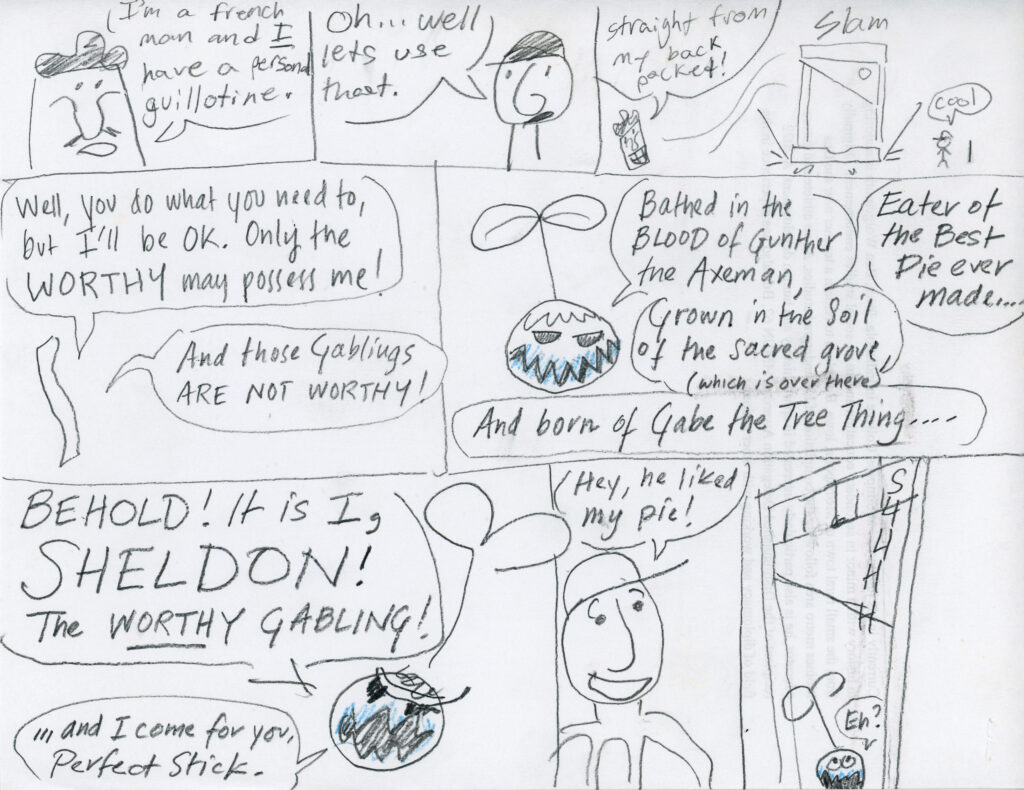 I'm a french
man and I
have a personal
guillotine.
Oh... well
lets use
that.
straight from
my back
pocket!
Slam
cool
Well, you do what you need to,
but I'll be OK. Only the
WORTHY may possess me!
And those Gablings
ARE NOT WORTHY!
Bathed in the
BLOOD of Gunther
the Axeman,
Grown in the Soil
of the sacred grove,
(which is over there)
Eater of
the Best
Pie ever
made....
And born of Gabe the Tree Thing.....
BEHOLD! It is I,
SHELDON!
The WORTHY GABLING!
... and I come for you,
Perfect Stick.
Hey, he liked
my pie!
Eh?